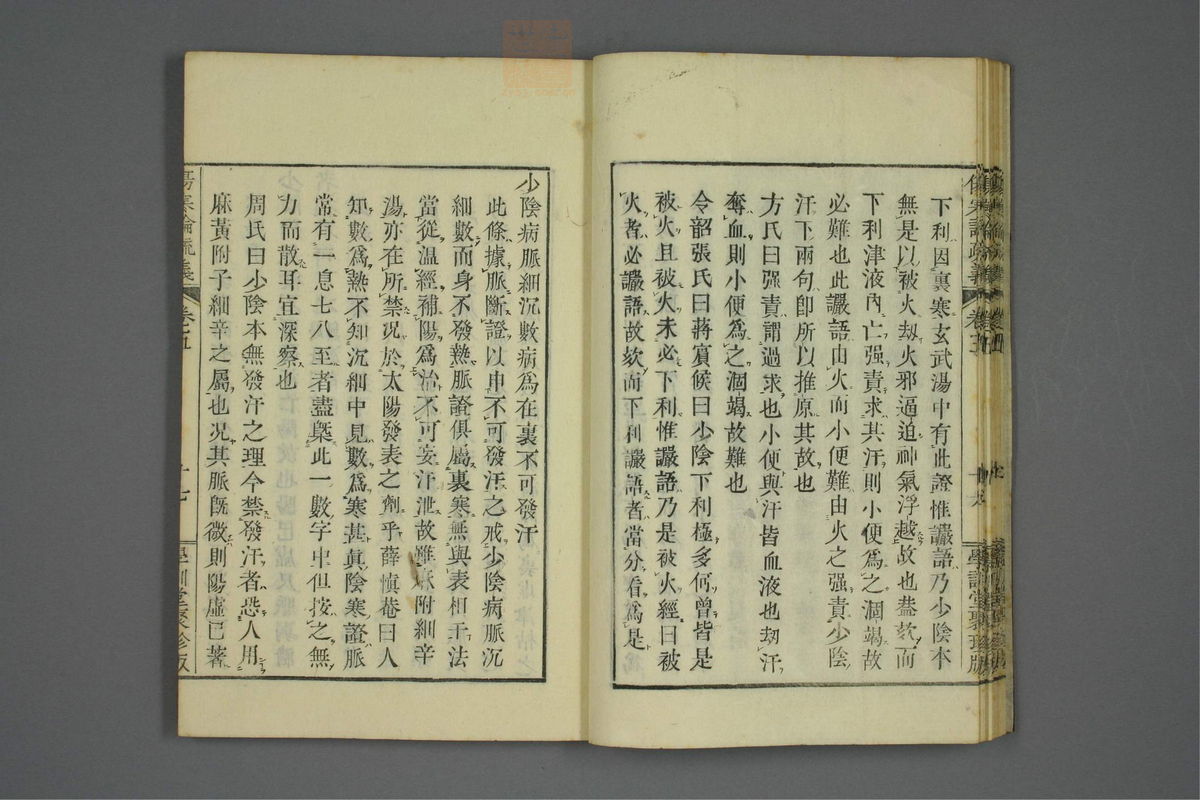 下利因裏寒玄武湯中有此證惟讝語乃少陰本
無是以被火刼火邪逼迫神氣浮越故也葢欬而
下利津液內亡强責求其汗則小便爲之涸竭故
必難也此讝語由火而小便難由火之强責少陰
汗下兩句卽所以推原其故也
方氏曰强責謂過求也小便與汗皆血液也刼汗
奪血則小便爲之涸竭故難也
令韶張氏曰蔣賔候曰少陰下利極多何曾皆是
被火且被火未必下利惟讝語乃是被火經曰被
火者必讝語故欬而下利讝語者當分看爲是
少陰病脈細沉數病爲在裏不可發汗
此條據脈斷證以申不可發汗之戒少陰病脈沉
細數而身不發熱脈證俱屬裏寒無與表相干法
當從温經補陽爲治不可妄汗泄故雖麻附細辛
湯亦在所禁况於太陽發表之劑乎薛愼菴曰人
知數爲熱不知沉細中見數爲寒甚眞陰寒證脈
常有一息七八至者盡槩此一數字中但按之無
力而散耳宜深察也
周氏曰少陰本無發汗之理今禁發汗者恐人用
麻黃附子細辛之屬也况其脈旣微則陽虛已著
傷寒論疏義 卷五 十七 學訓堂聚珍版